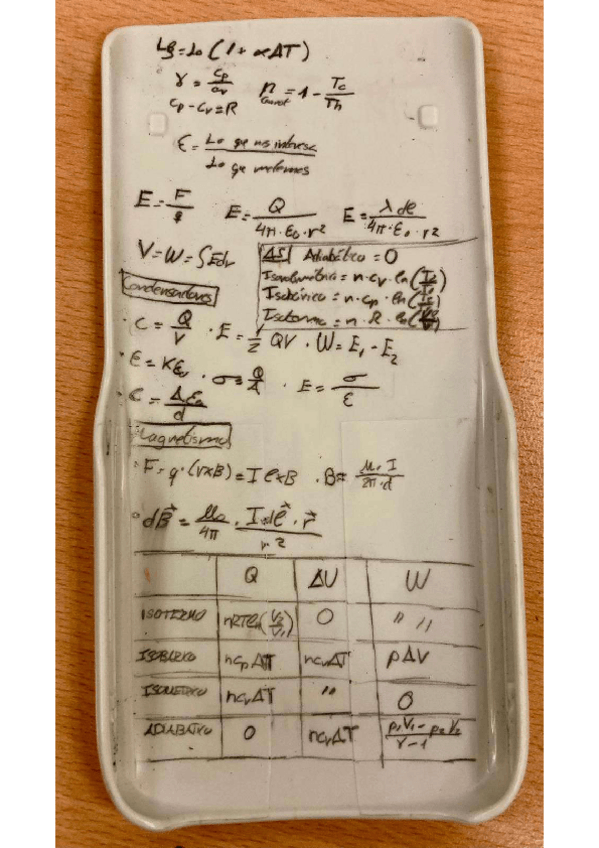 Lf = Lo (1 + αΔT)
γ = Cp/Cv   η Carnot = 1 - Tc/Th
Cp - Cv = R
ε = Lo que nos interesa / Lo que metemos
E = F/q   E = Q/4π·ε₀·r²   E = λdl/4π·ε₀·r²
V = W = ∫Edr
ΔS Adiabático = 0
Isovolumétrico = n·cv·ln(
Isobárico = n·cp·ln(
Isotermo = n·R·ln(
Condensadores
· C = Q/V · E = 1/2 QV · W = E₁ - E₂
· ε = Kε₀ · σ = Q/A · E = σ/ε
· C = Aε₀/d
Magnetismo
· F = q·(v×B) = I l×B · B = μ₀ I/2π·d
· dB⃗ = μ₀/4π · I·dl⃗·r⃗/r²
Q ΔU W
ISOTERMO nRTln(V₂/V₁) 0 〃
ISOBÁRICO ncpΔT ncvΔT pΔV
ncvΔT 〃 0
ADIABÁTICO 0 ncvΔT p₁V₁ - p₂V₂/γ-1